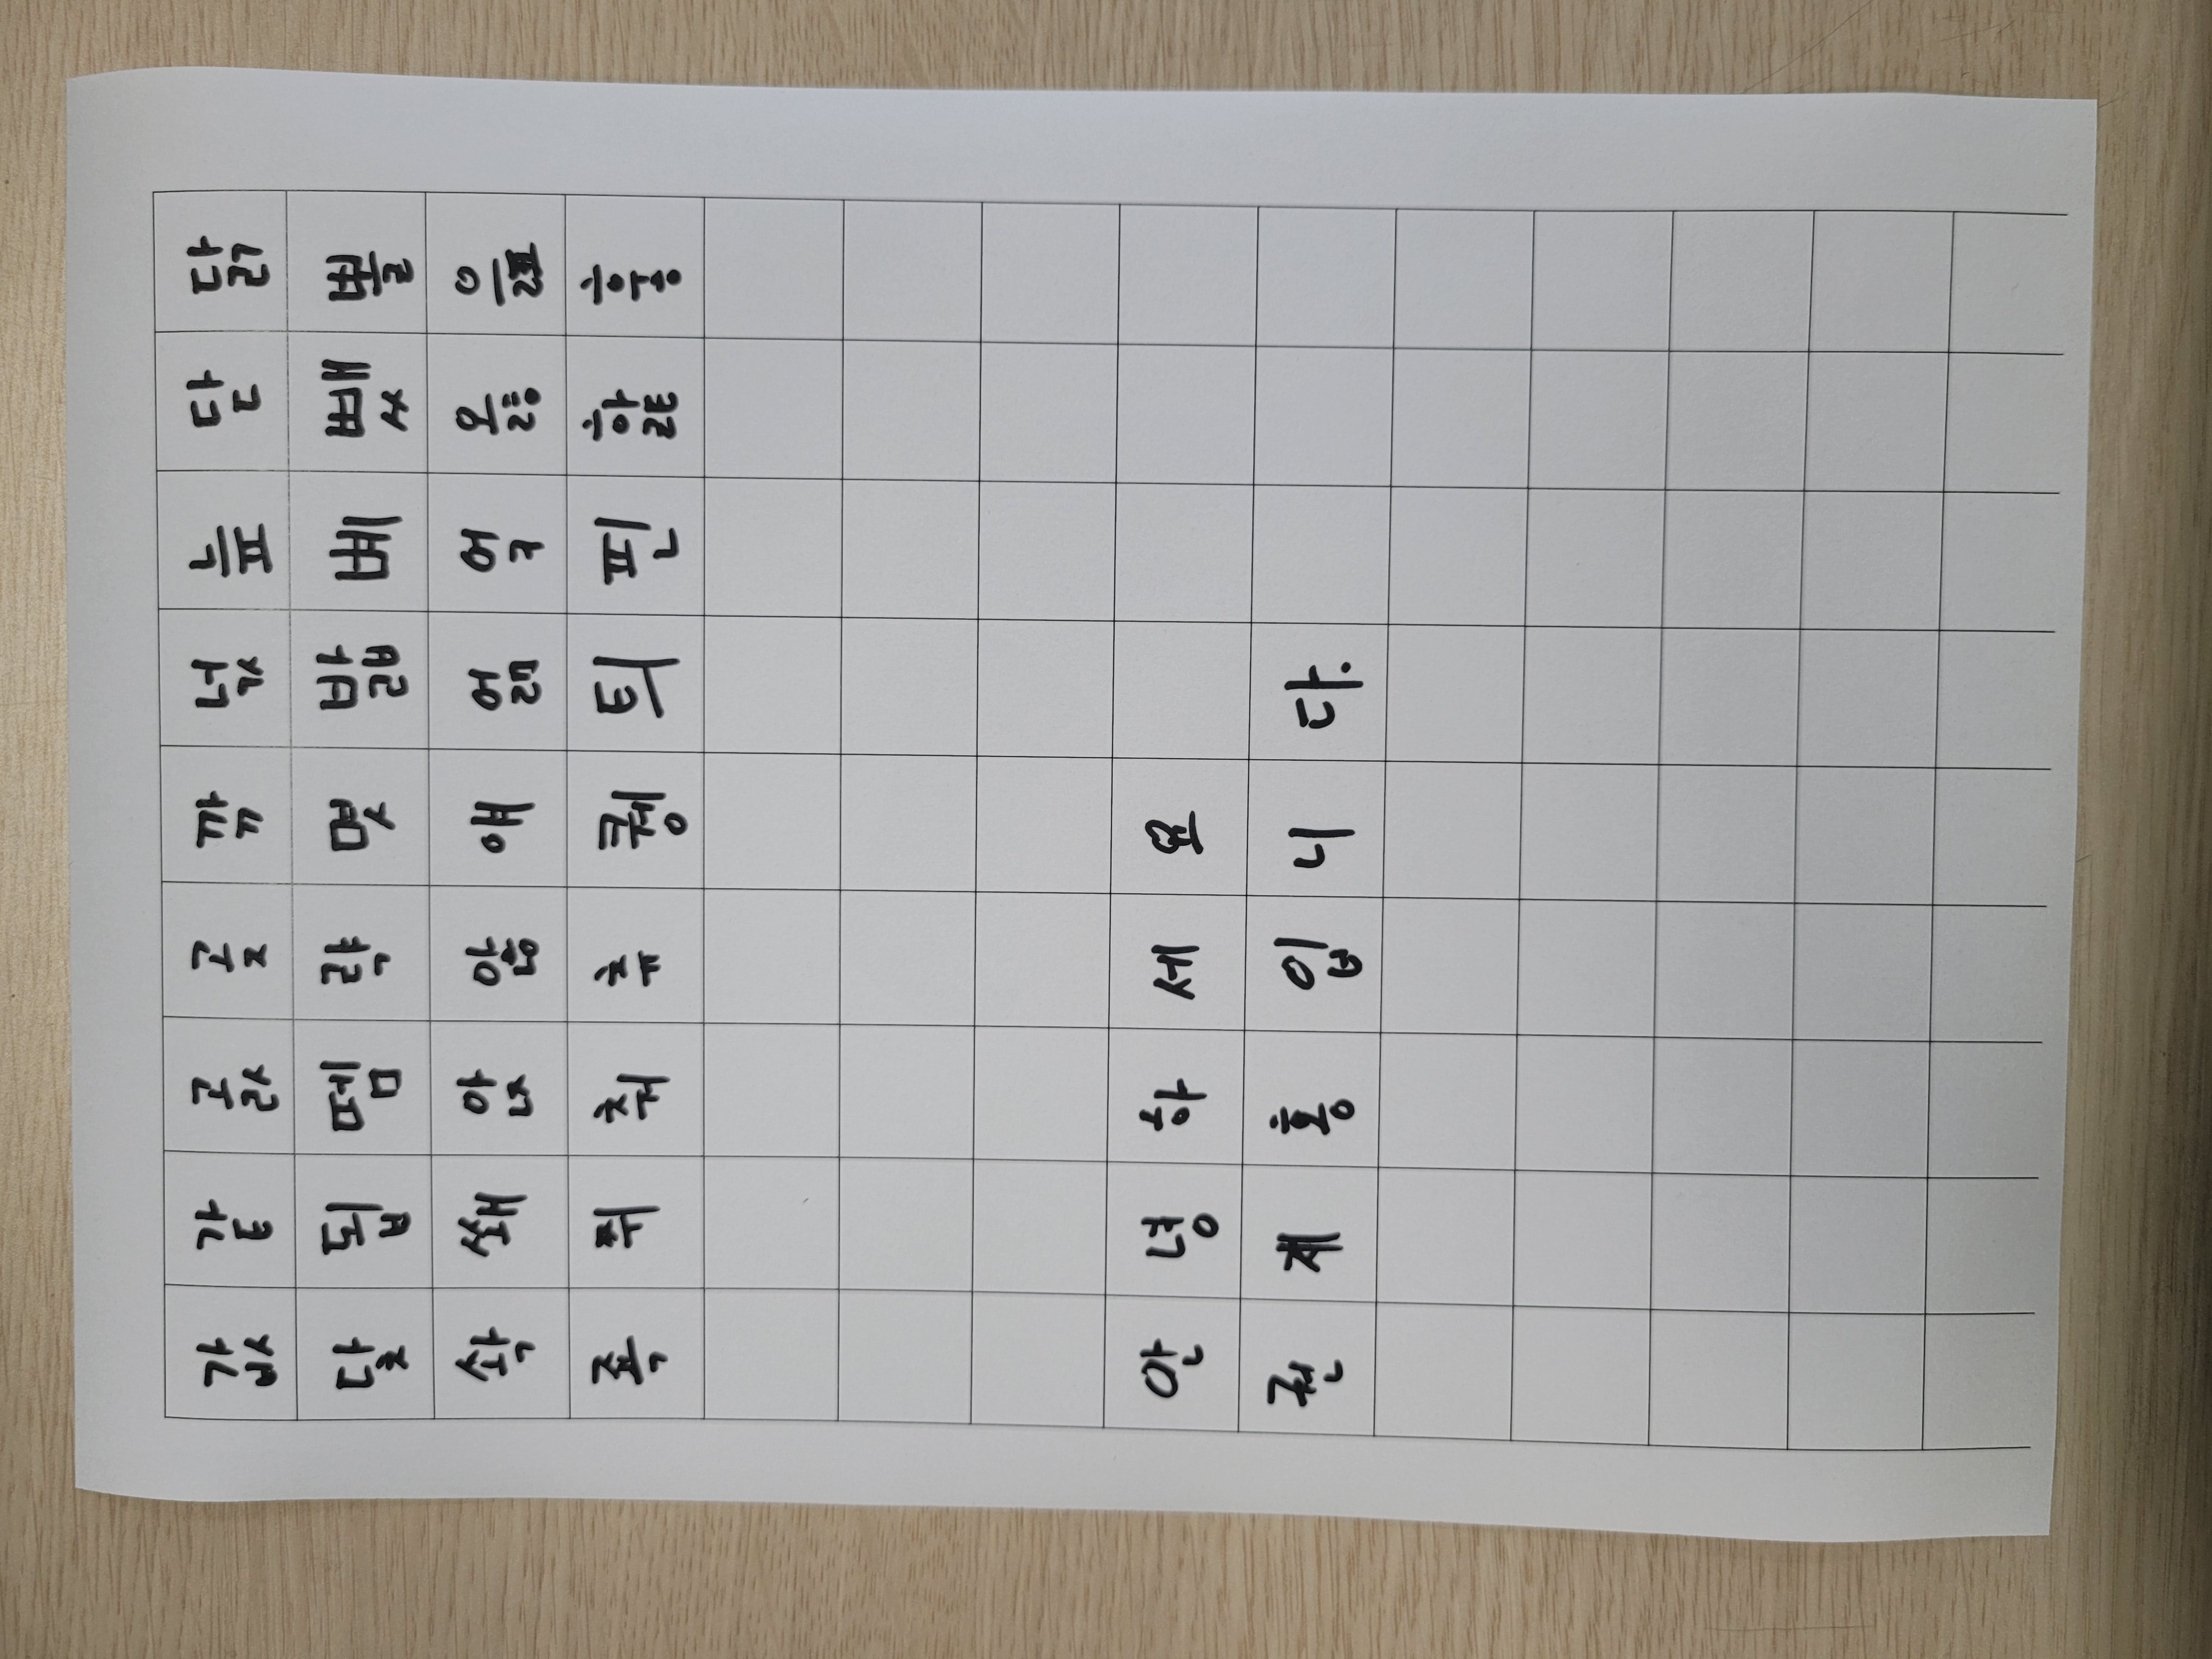 값 같 곬 곶 깎 넋 늪 닫 닭
닻 됩 뗌 략 몇 밟 뻬 뺐 뽈
솩 쐐 앉 않 얘 얾 억 옳 읊
죡 쮜 춰 츄 퀭 틔 핀 핥 훙
안 녕 하 세 요
권 계 홍 입 니 다.